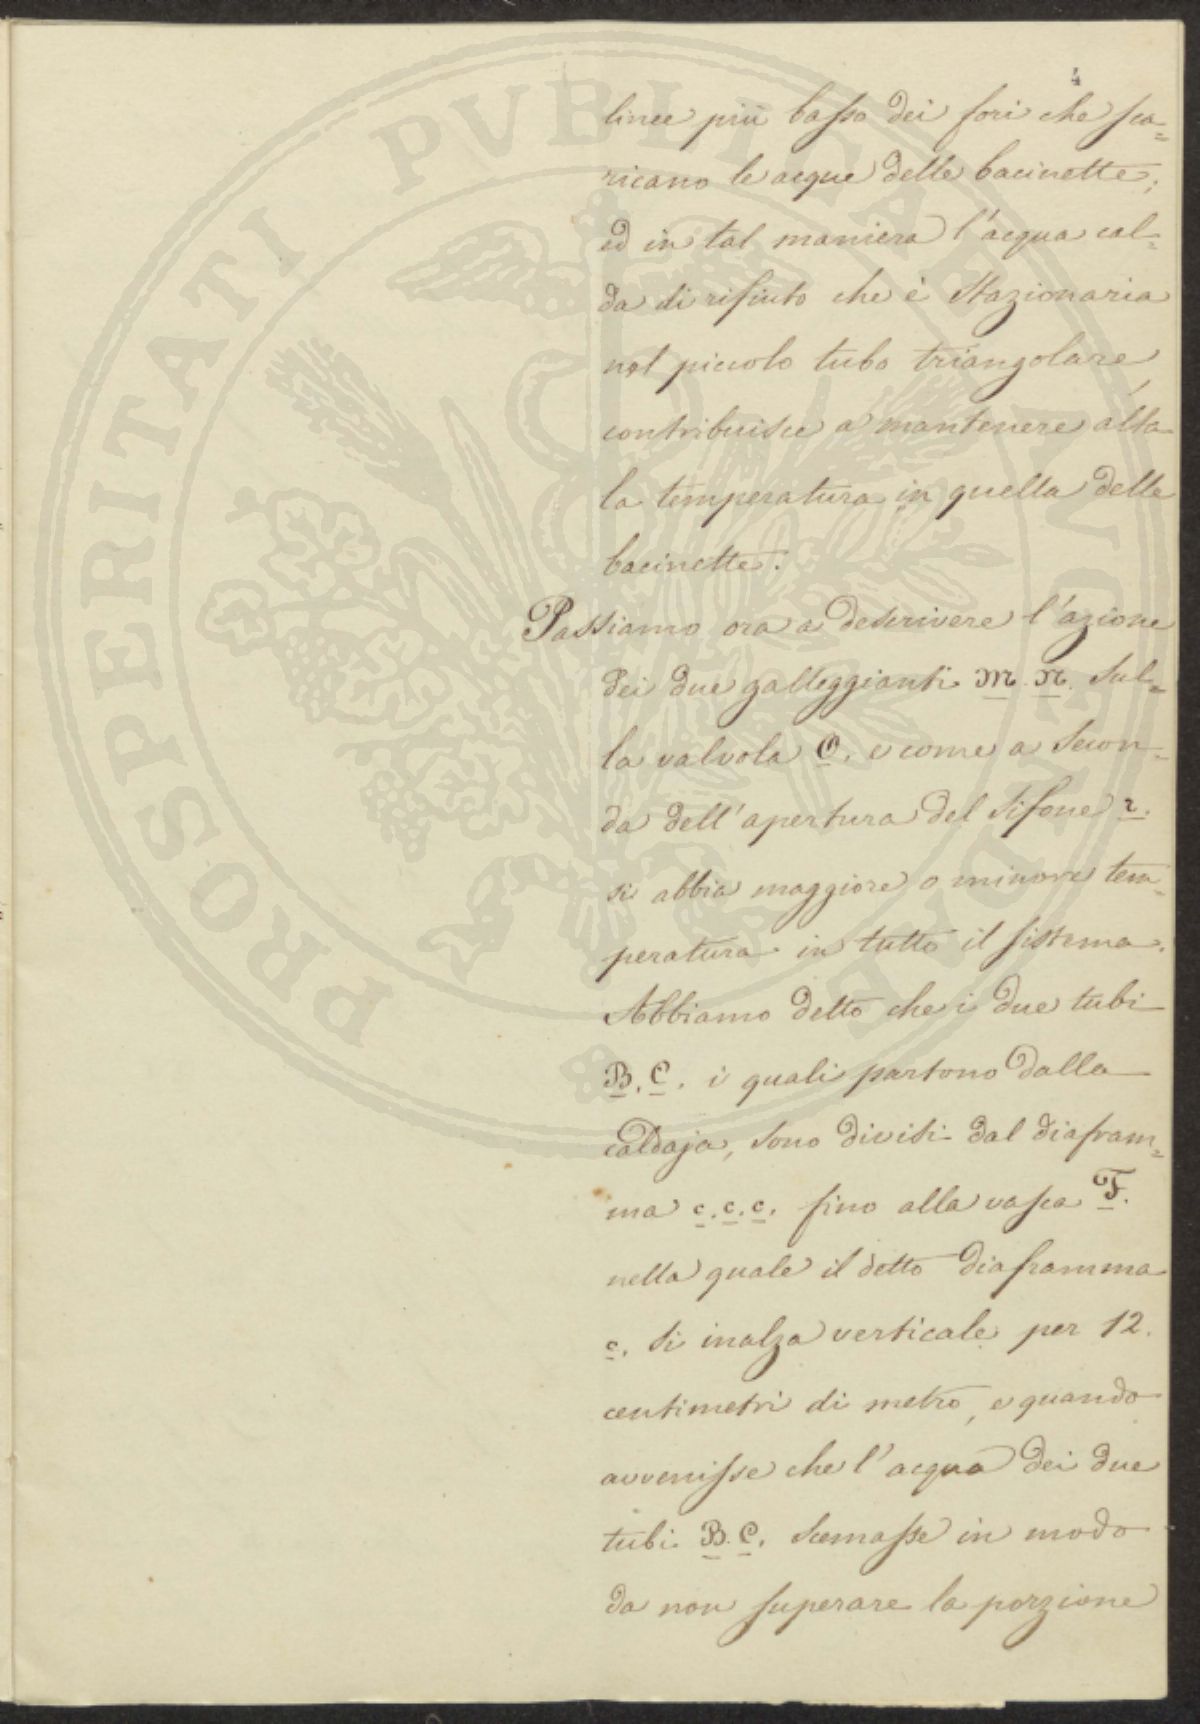 4
linee più basso dei fori che sca=
ricano le acque delle bacinette;
ed in tal maniera l'acqua cal=
da di rifiuto che è stazionaria
nel piccolo tubo triangolare,
contribuisce a mantenere alta
la temperatura in quella delle
bacinette.
Passiamo ora a descrivere l'azione
dei due galleggianti M. N. sul=
la valvola O. e come a secon=
da dell'apertura del sifone r.
si abbia maggiore o minore tem=
peratura in tutto il sistema.
Abbiamo detto che i due tubi
B. C. i quali partono dalla
caldaja, sono divisi dal diafram=
ma c. c. c. fino alla vasca F.
nella quale il detto diaframma
c. si inalza verticale per 12.
centimetri di metro, e quando
avvenisse che l'acqua dei due
tubi B. C. scemasse in modo
da non superare la porzione
PROSPERITATI PVBLICAE AVGENDAE